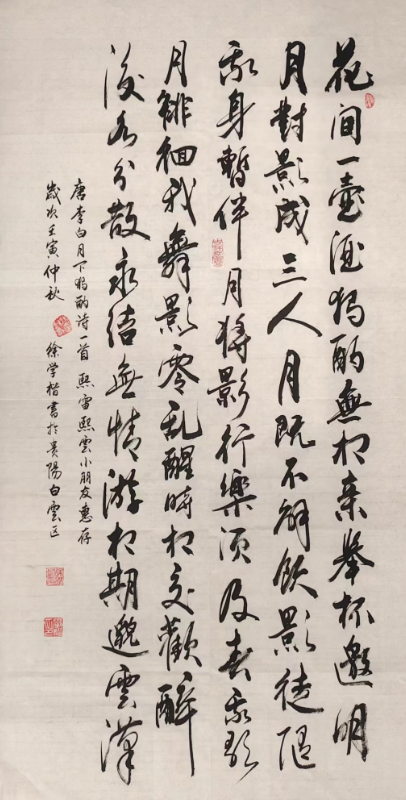 花间一壶酒独酌無相亲举杯邀明
月對影成三人月既不解飲影徒隨
我身暫伴月将影行樂须及春我歌
月徘徊我舞影零乱醒時相交歡醉
後各分散永结無情游相期邈雲漢
唐李白月下独酌诗一首 熙雷熙雲小朋友惠存
歲次壬寅仲秋 徐学楷書於贵陽白雲区